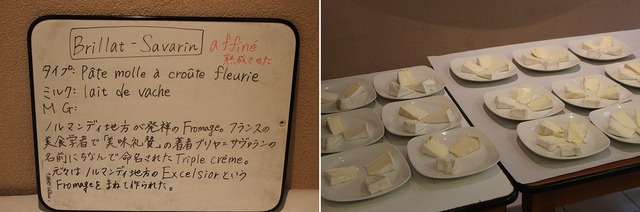 Brillat-Savarin affiné
熟成させた
タイプ: Pâte molle à croûte fleurie
ミルク: lait de vache
MG:
ノルマンディ地方が発祥のFromage。フランスの
美食学者で「美味礼賛」の著者ブリヤ-サヴァランの
名前にちなんで命名されたTriple crème。
元々はノルマンディ地方のExcelsiorという
Fromageをまねて作られた。